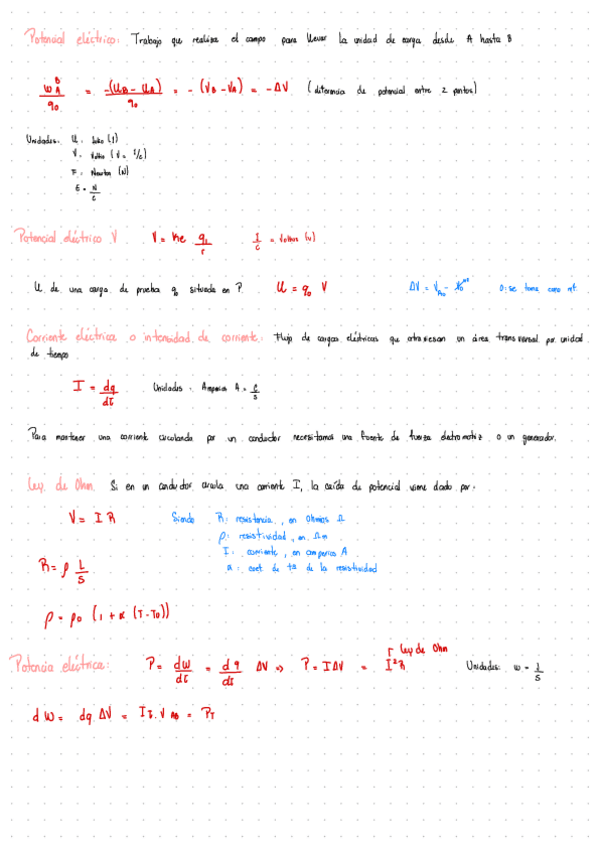 Potencial eléctrico: Trabajo que realiza el campo para llevar la unidad de carga desde A hasta B
W_A^B / q0 = -(UB - UA) / q0 = -(VB - VA) = -ΔV (diferencia de potencial entre 2 puntos)
Unidades: U. Julio (J)
V. Voltio (V = J/C)
F. Newton (N)
E = N/C
Potencial eléctrico V V = Ke q0/r J/C = Voltios (V)
U de una carga de prueba q0 situada en P. U = q0 V ΔV = V 0: se toma como ref.
Corriente eléctrica o intensidad de corriente: Flujo de cargas eléctricas que atraviesan un área transversal por unidad
de tiempo
I = dq/dt Unidades: Amperios A = C/s
Para mantener una corriente circulando por un conductor necesitamos una fuente de fuerza electromotriz o un generador.
Ley de Ohm. Si en un conductor circula una corriente I, la caída de potencial viene dado por:
V = I R Siendo R: resistencia, en Ohmios Ω
ρ: resistividad, en Ω m
I: corriente, en amperios A
α: coef de tª de la resistividad
R = ρ L/S
ρ = ρ0 (1 + α (T - T0))
Ley de Ohm
Potencia eléctrica: P = dW/dt = dq/dt ΔV => P = I ΔV = I²R Unidades: W = J/s
dW = dq. ΔV = I t. V AB = Pt